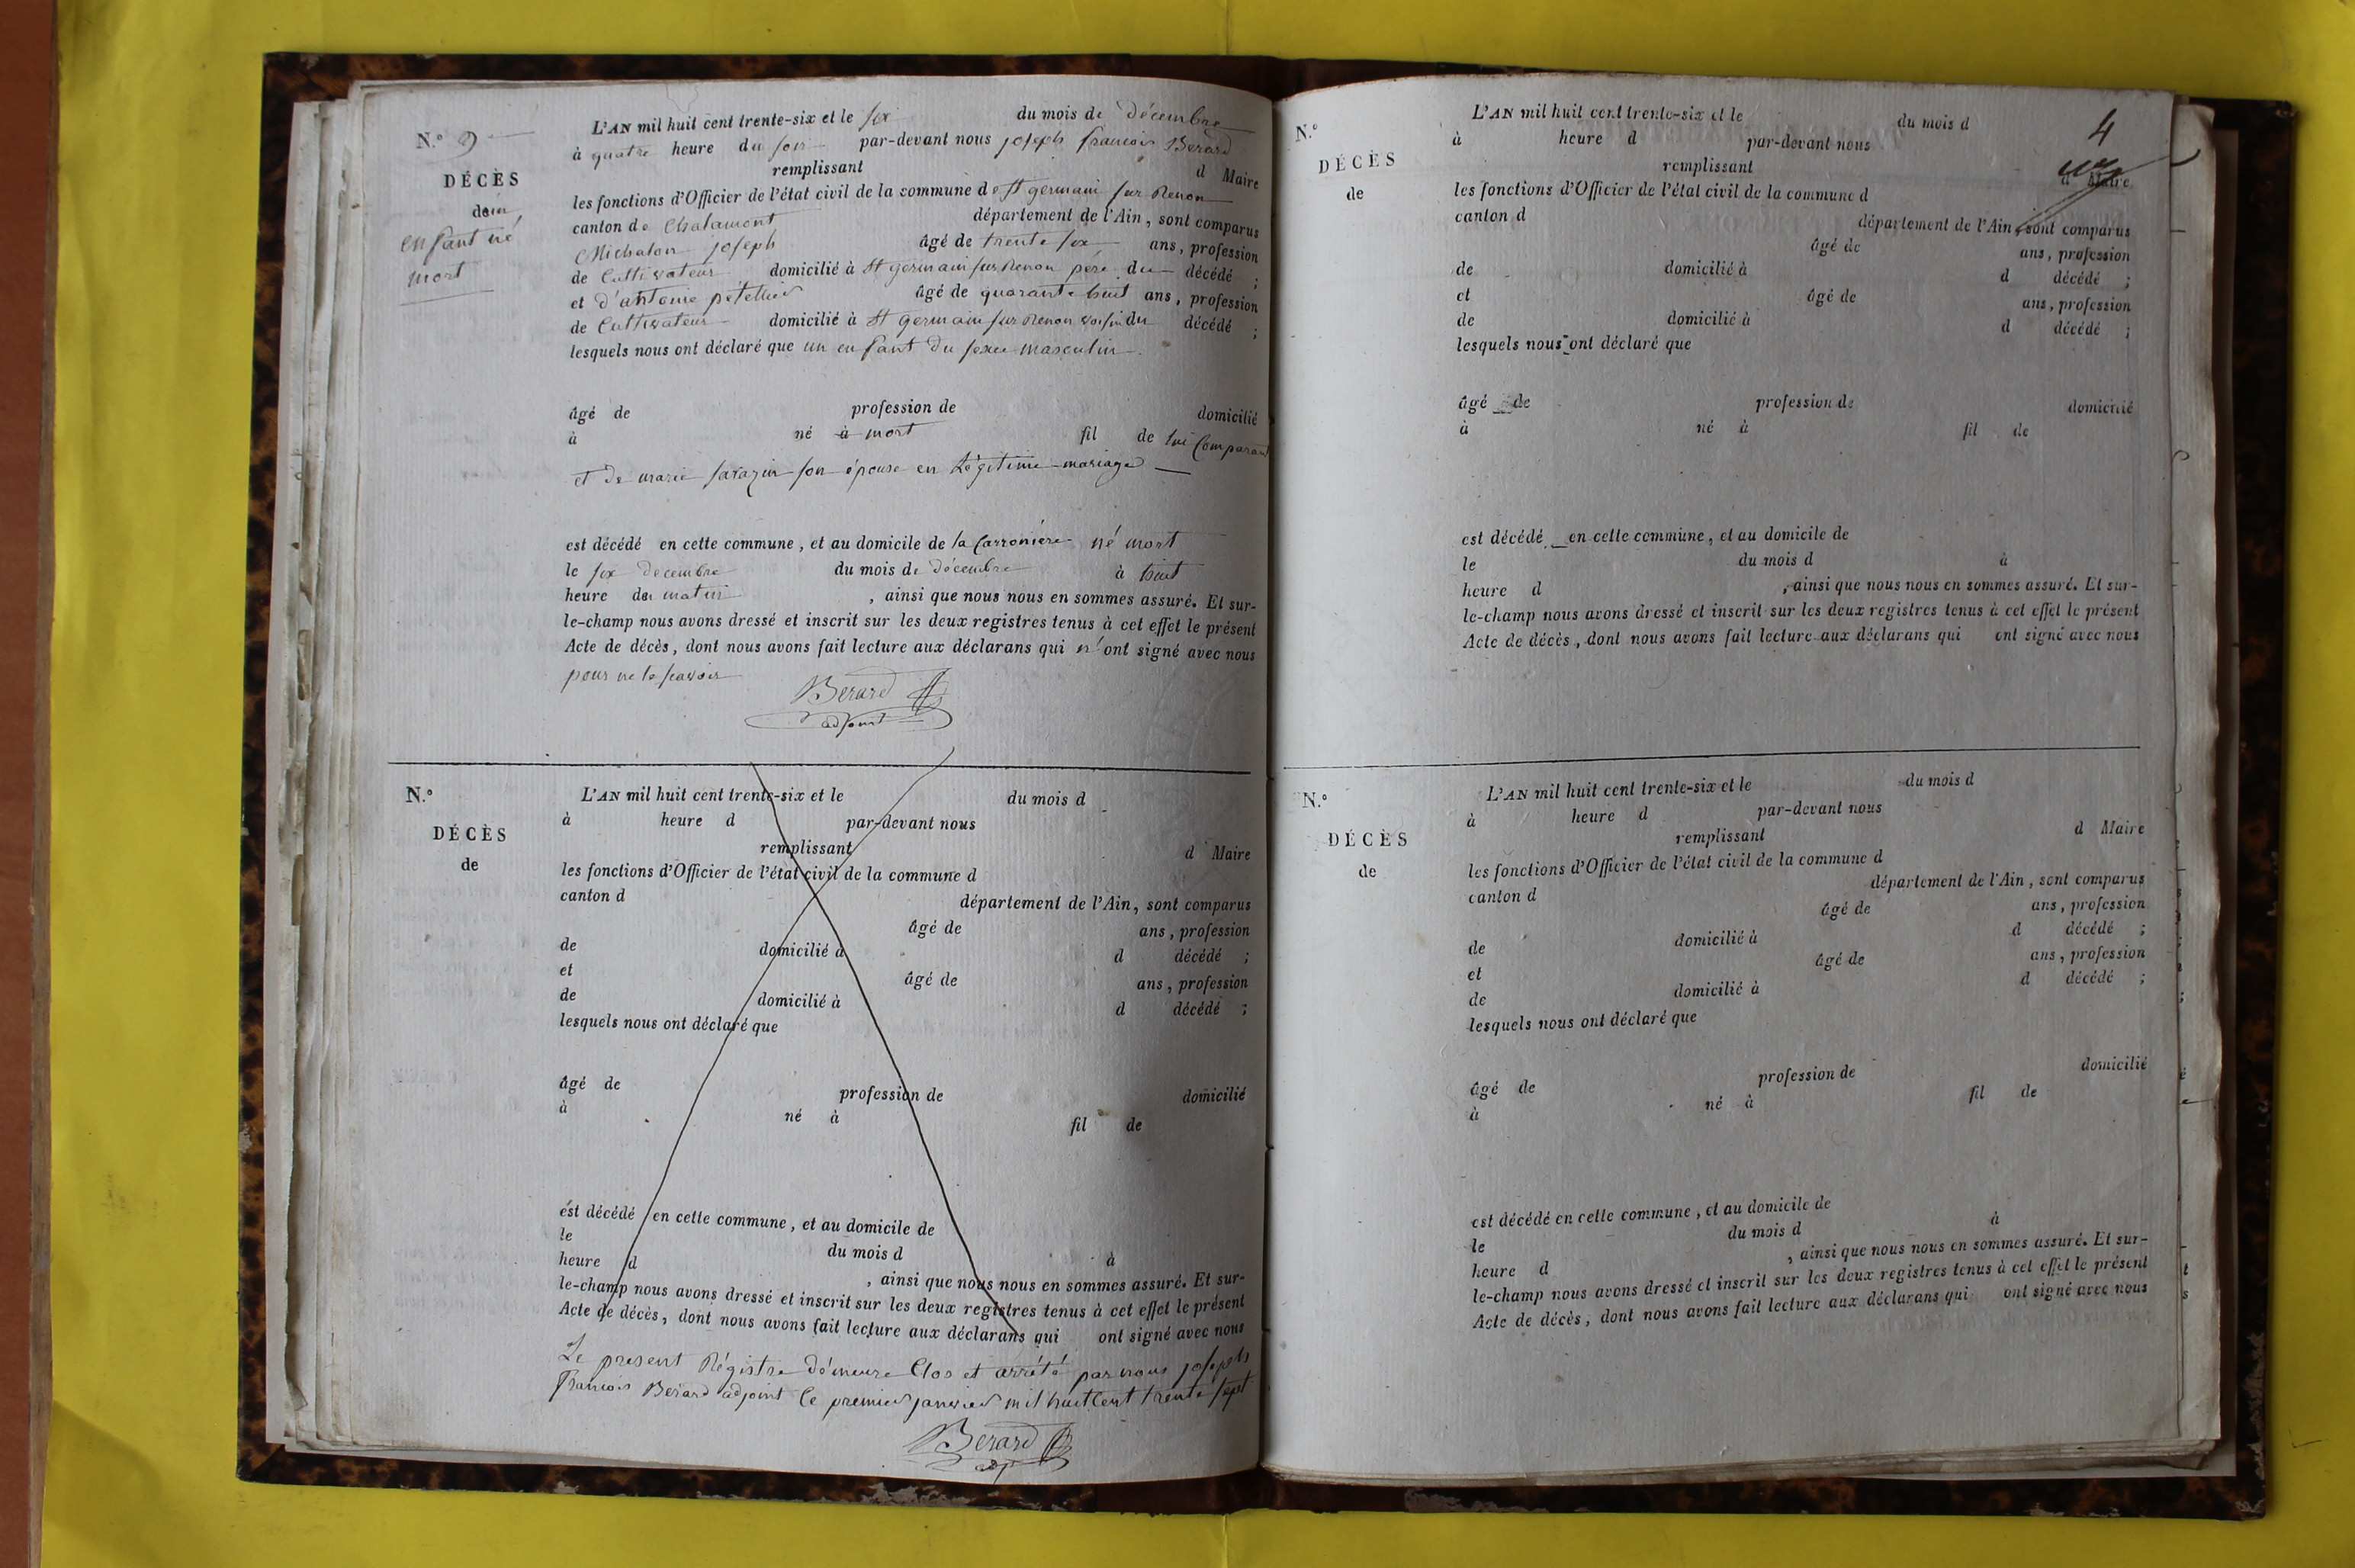 N.° 9
DÉCÈS
d'un
enfant né
mort
L'AN mil huit cent trente-six et le six du mois de décembre
à quatre heure du soir par-devant nous joseph francois Berard
remplissant d Maire
les fonctions d'Officier de l'état civil de la commune de st germain sur Renon
canton de Chalamont département de l'Ain, sont comparus
Michalon joseph âgé de trente six ans, profession
de Cultivateur domicilié à St germain sur Renon père du décédé ;
et d'antoine pétellier âgé de quarante huit ans, profession
de Cultivateur domicilié à St germain sur Renon voisin du décédé ;
lesquels nous ont déclaré que un enfant du sexe masculin
âgé de profession de domicilié
à né à mort fil de lui Comparant
et de marie sarazin son épouse en Légitime mariage
est décédé en cette commune, et au domicile de la Carronière né mort
le six decembre du mois de décembre à huit
heure du matin , ainsi que nous nous en sommes assuré. Et sur-
le-champ nous avons dressé et inscrit sur les deux registres tenus à cet effet le présent
Acte de décès, dont nous avons fait lecture aux déclarans qui n'ont signé avec nous
pour ne le scavoir
Berard
adjoint
N.°
DÉCÈS
de
L'AN mil huit cent trente-six et le du mois d
à heure d par-devant nous
remplissant d Maire
les fonctions d'Officier de l'état civil de la commune d
canton d département de l'Ain, sont comparus
âgé de ans, profession
de domicilié à d décédé ;
et âgé de ans, profession
de domicilié à d décédé ;
lesquels nous ont déclaré que
âgé de profession de domicilié
à né à fil de
est décédé en cette commune, et au domicile de
le du mois d à
heure d , ainsi que nous nous en sommes assuré. Et sur-
le-champ nous avons dressé et inscrit sur les deux registres tenus à cet effet le présent
Acte de décès, dont nous avons fait lecture aux déclarans qui ont signé avec nous
Le présent Régistre démeure Clos et arrété par nous joseph
francois Berard adjoint Ce premier janvier mil huit Cent trente sept
Berard
adj
4
N.°
DÉCÈS
de
L'AN mil huit cent trente-six et le du mois d
à heure d par-devant nous
remplissant d Maire
les fonctions d'Officier de l'état civil de la commune d
canton d département de l'Ain, sont comparus
âgé de ans, profession
de domicilié à d décédé ;
et âgé de ans, profession
de domicilié à d décédé ;
lesquels nous ont déclaré que
âgé de profession de domicilié
à né à fil de
est décédé en cette commune, et au domicile de
le du mois d à
heure d , ainsi que nous nous en sommes assuré. Et sur-
le-champ nous avons dressé et inscrit sur les deux registres tenus à cet effet le présent
Acte de décès, dont nous avons fait lecture aux déclarans qui ont signé avec nous
N.°
DÉCÈS
de
L'AN mil huit cent trente-six et le du mois d
à heure d par-devant nous
remplissant d Maire
les fonctions d'Officier de l'état civil de la commune d
canton d département de l'Ain, sont comparus
âgé de ans, profession
de domicilié à d décédé ;
et âgé de ans, profession
de domicilié à d décédé ;
lesquels nous ont déclaré que
âgé de profession de domicilié
à né à fil de
est décédé en cette commune, et au domicile de
le du mois d à
heure d , ainsi que nous nous en sommes assuré. Et sur-
le-champ nous avons dressé et inscrit sur les deux registres tenus à cet effet le présent
Acte de décès, dont nous avons fait lecture aux déclarans qui ont signé avec nous